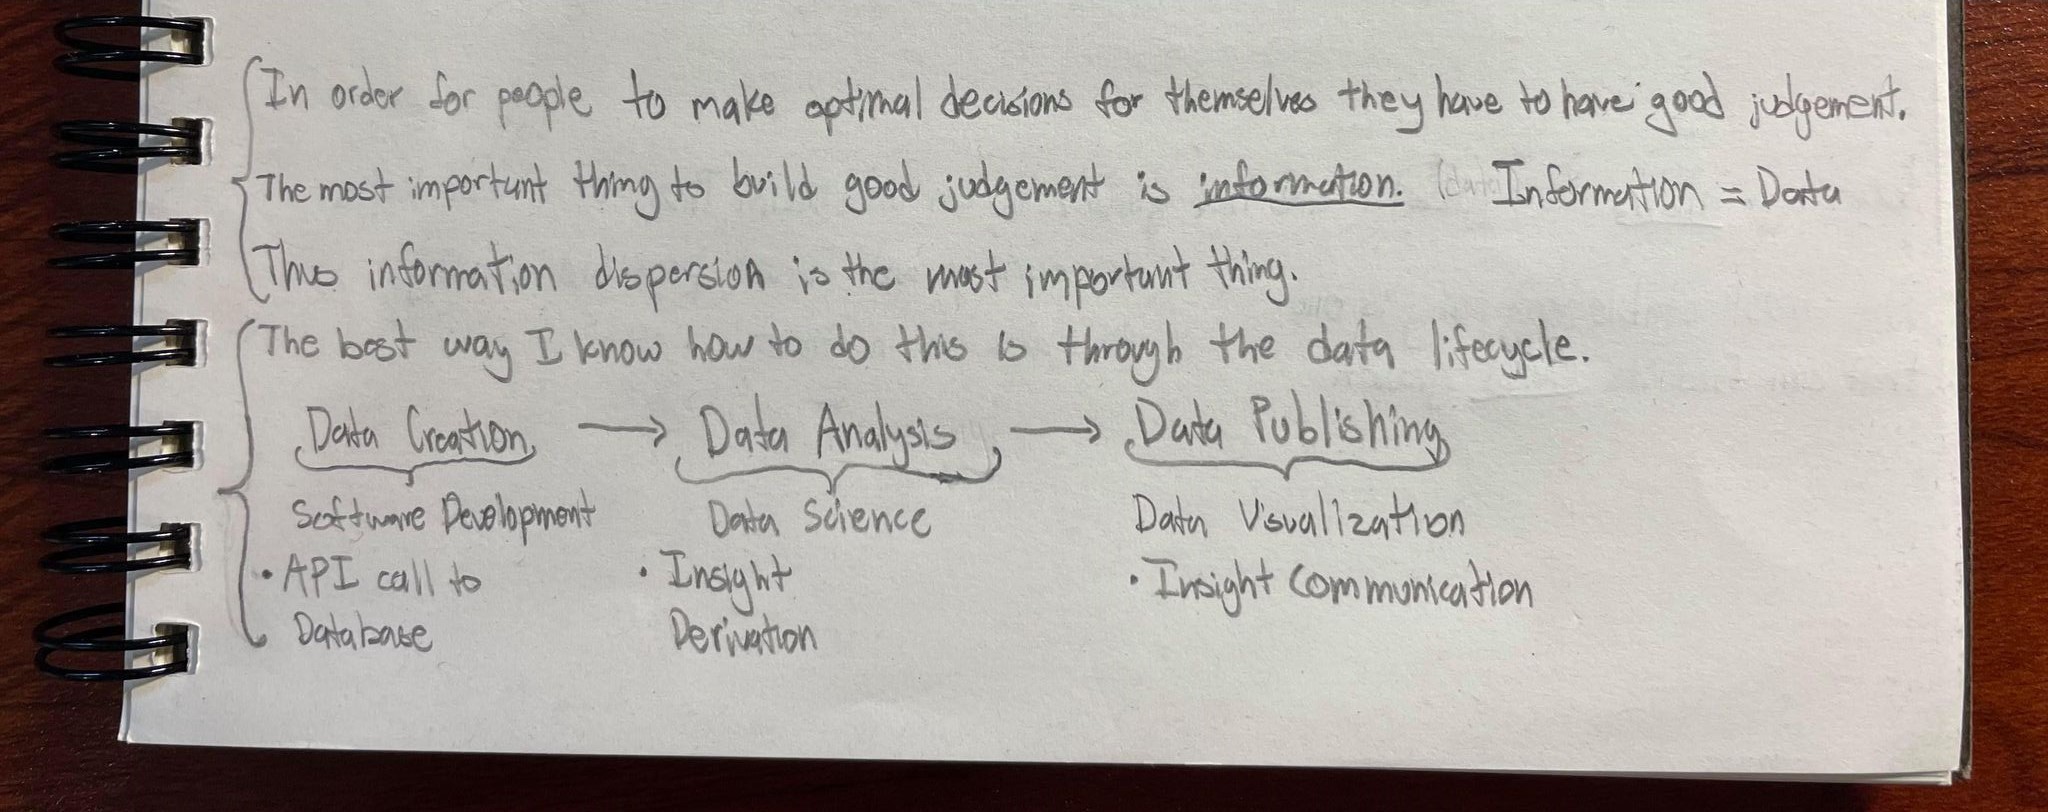 In order for people to make optimal decisions for themselves they have to have good judgement.
The most important thing to build good judgement is information. Information = Data
Thus information dispersion is the most important thing.
The best way I know how to do this is through the data lifecycle.
Data Creation → Data Analysis → Data Publishing
Software Development Data Science Data Visualization
• API call to • Insight • Insight Communication
Database Derivation